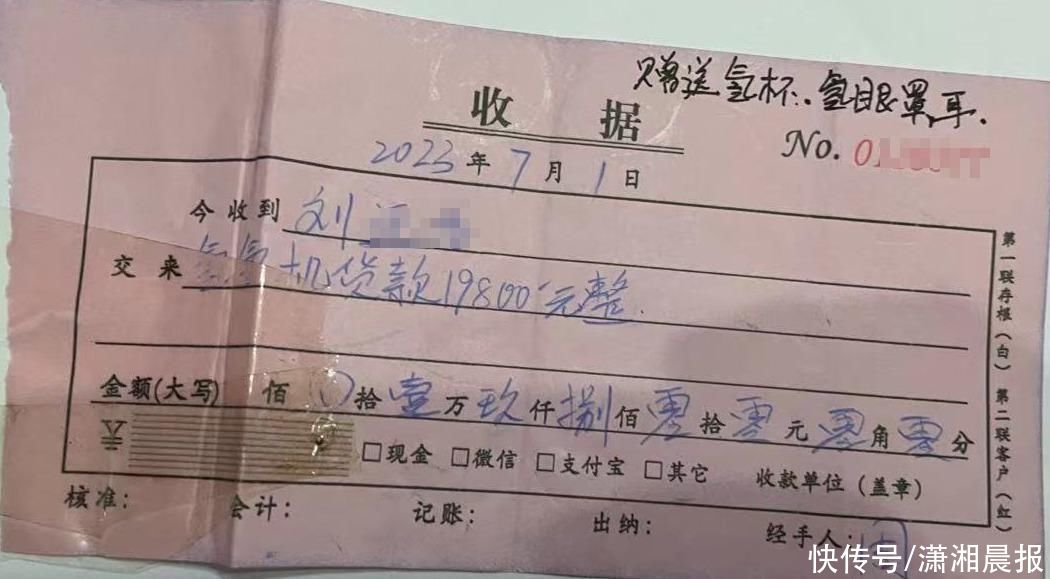 赠送氢杯.氢眼罩,耳.
收 据
No. 01
2023年7月1日
今收到 刘
交来 氢氧机货款19800元整.
金额(大写) 佰 0拾壹万玖仟捌佰零拾零元零角零分
□现金 □微信 □支付宝 □其它 收款单位(盖章)
核准: 会计: 记账: 出纳: 经手人:
第一联存根(白) 第二联客户(红)
快传号/潇湘晨报